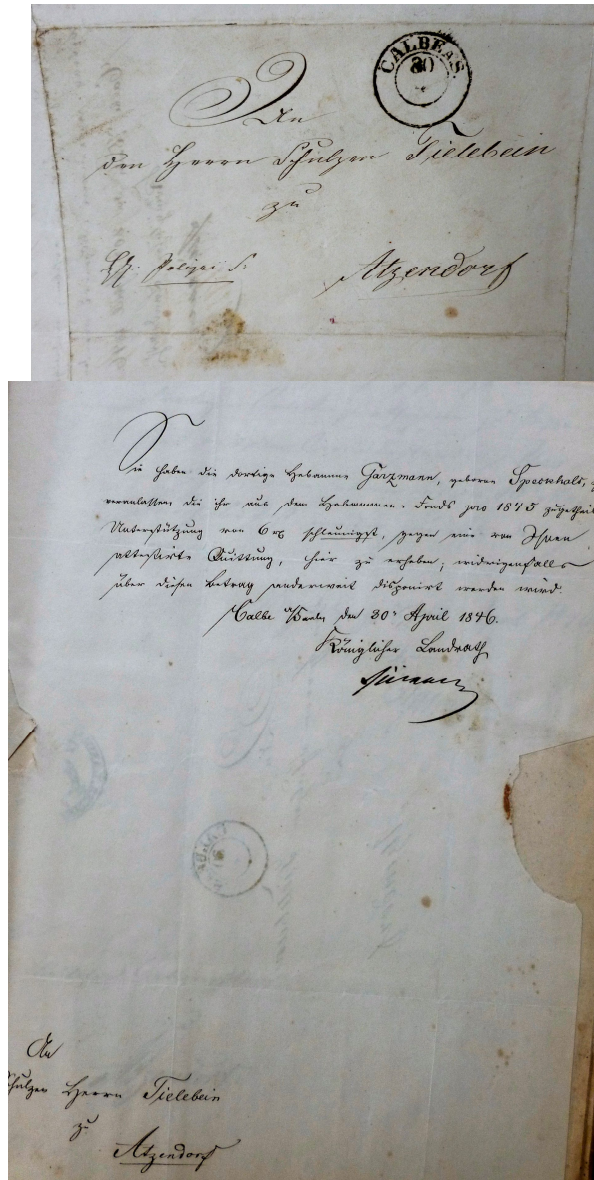 CALBE A S.
30
4
An
den Herrn Schulzen Tielebein
zu
Atzendorf
Sie haben die dortige Hebamme Garzmann, geborne Speckhals, z
veranlassen die ihr aus dem Hebammen-Fonds pro 1845 zugetheil
Unterstützung von 6 rt schleunigst, gegen eine von Ihnen
attestirte Quittung, hier zu erheben; widrigenfalls
über diesen Betrag anderweit disponirt werden wird.
Calbe a/Saale den 30t April 1846.
Königlicher Landrath
An
Schulzen Herrn Tielebein
zu
Atzendorf